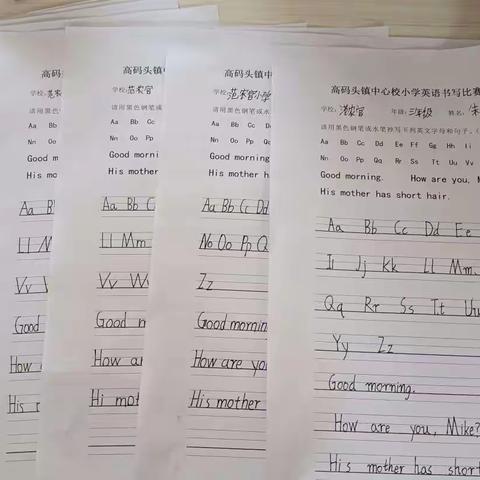 高码头
学校:范宋官
请用黑色
Aa Bb
Nn Oo
Good morni
His mothe
Aa B
Ll N
Vv W
Good
How
His
高码头镇
学校:范宋官
请用黑色钢笔或
Aa Bb Cc
Nn Oo Pp
Good morni
His mothe
Aa Bb C
Ll Mm
Vv Ww
Good m
How ar
Hi mot
高码头镇中
学校:范宋官小学
请用黑色钢笔或水
Aa Bb Cc Dd
Nn Oo Pp Q
Good morning
His mother
Aa Bb Cc Dd
No Oo Pp Q
Zz
Good mornin
How are yo
His mother
高码头镇中心校小学英语书写比赛
学校: 年级:三年级 姓名:朱
请用黑色钢笔或水笔抄写下列英文字母和句子。
Aa Bb Cc Dd Ee Ff Gg Hh Ii
Nn Oo Pp Qq Rr Ss Tt Uu Vv
Good morning. How are you, M
His mother has short hair.
Aa Bb Cc Dd Ee
Ii Jj Kk Ll Mm
Qq Rr Ss Tt Uu
Yy Zz
Good morning.
How are you, Mike?
His mother has short